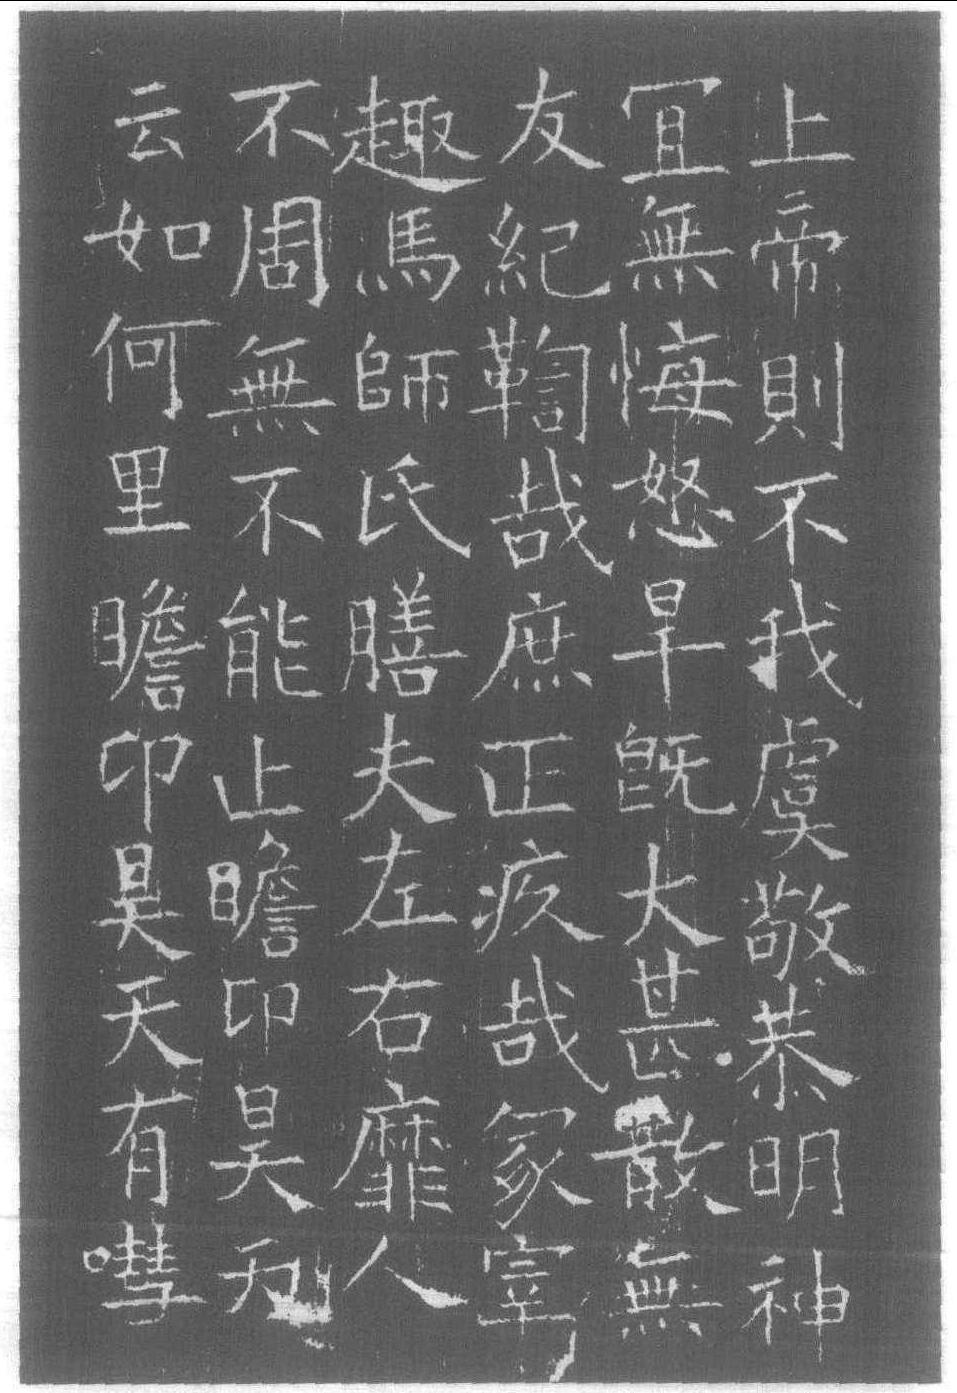 上帝則不我虞敬恭明神
宜無悔怒旱既大甚散無
友紀鞫哉庶正疚哉冢宰
趣馬師氏膳夫左右靡人
不周無不能止瞻卬昊天
云如何里瞻卬昊天有嘒